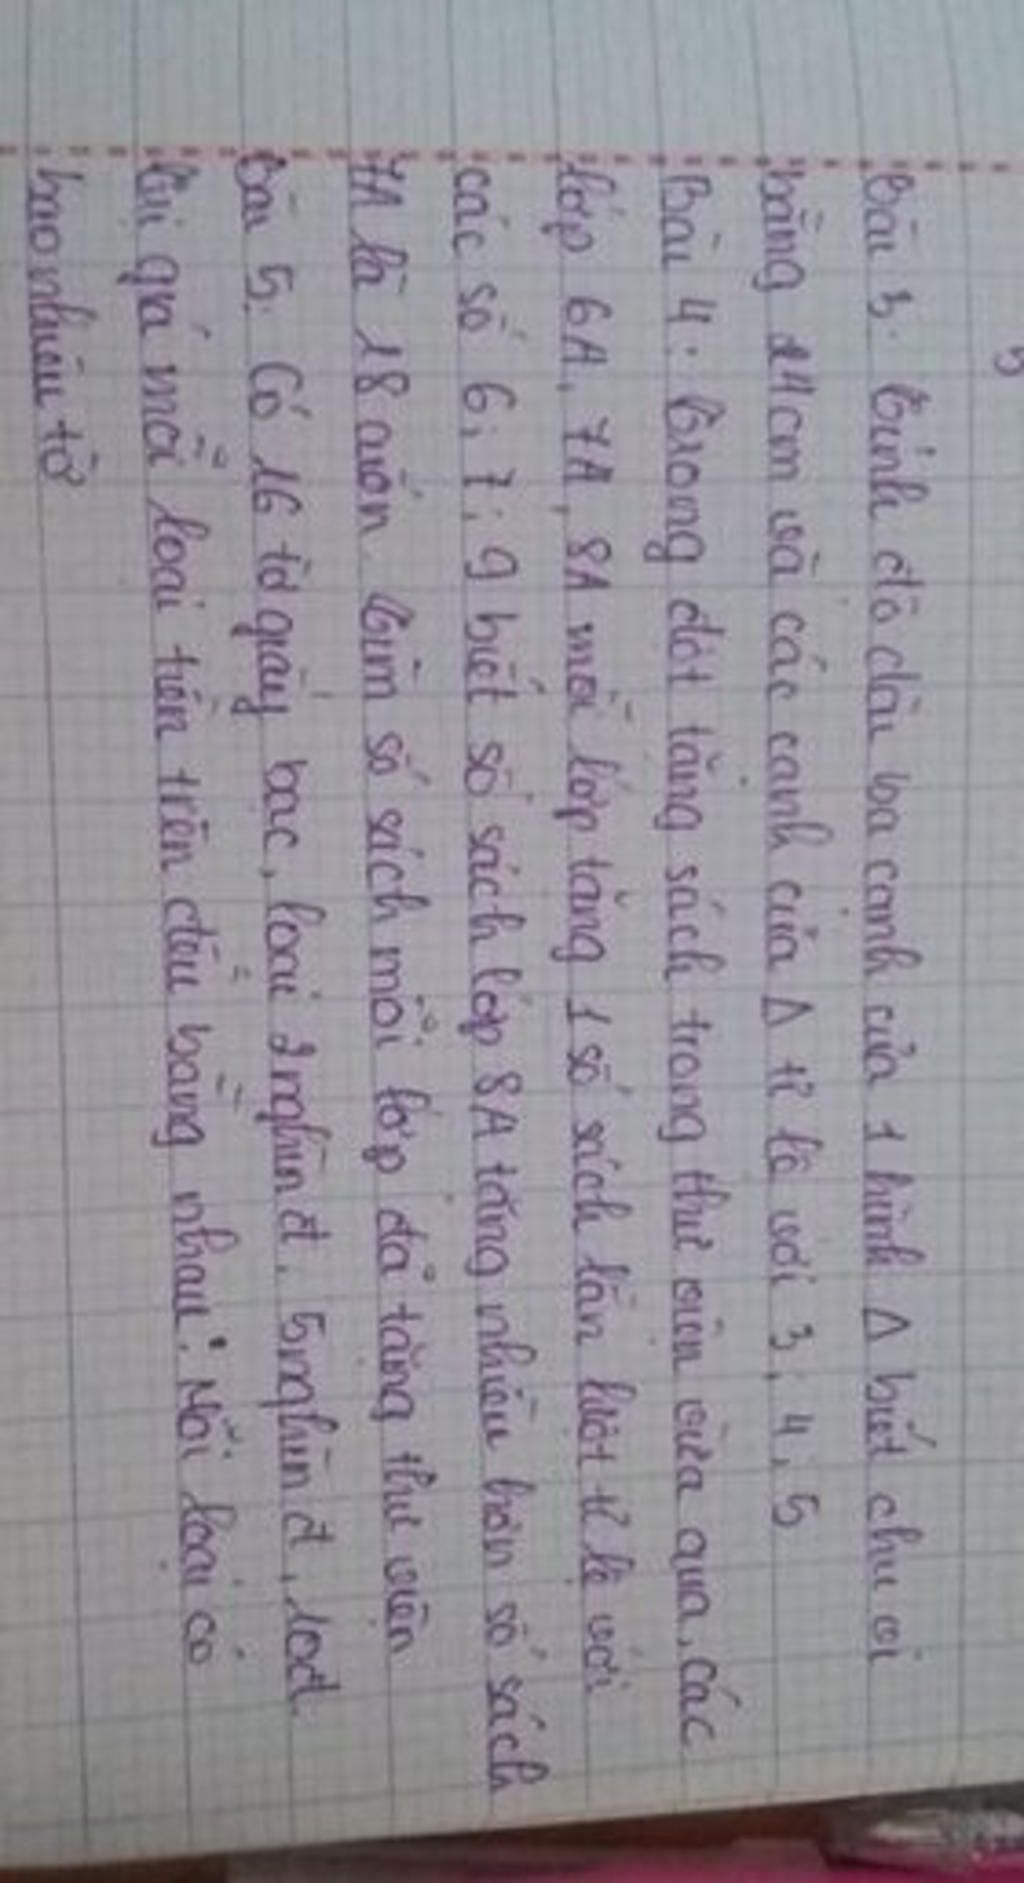 5
Bài 3. Tính độ dài ba cạnh của 1 hình Δ biết chu vi
bằng 24cm và các cạnh của Δ tỉ lệ với 3; 4; 5
Bài 4: Trong đợt tặng sách trong thư viện vừa qua, các
lớp 6A, 7A, 8A mỗi lớp tặng 1 số sách lần lượt tỉ lệ với
các số 6; 7; 9 biết số sách lớp 8A tặng nhiều hơn số sách
7A là 18 cuốn. Tìm số sách mỗi lớp đã tặng thư viện
Bài 5. Có 16 tờ giấy bạc, loại 2nghìn đ, 5nghìn đ,
giá mỗi loại tiền trên đều bằng nhau. Mỗi loại có
bao nhiêu tờ